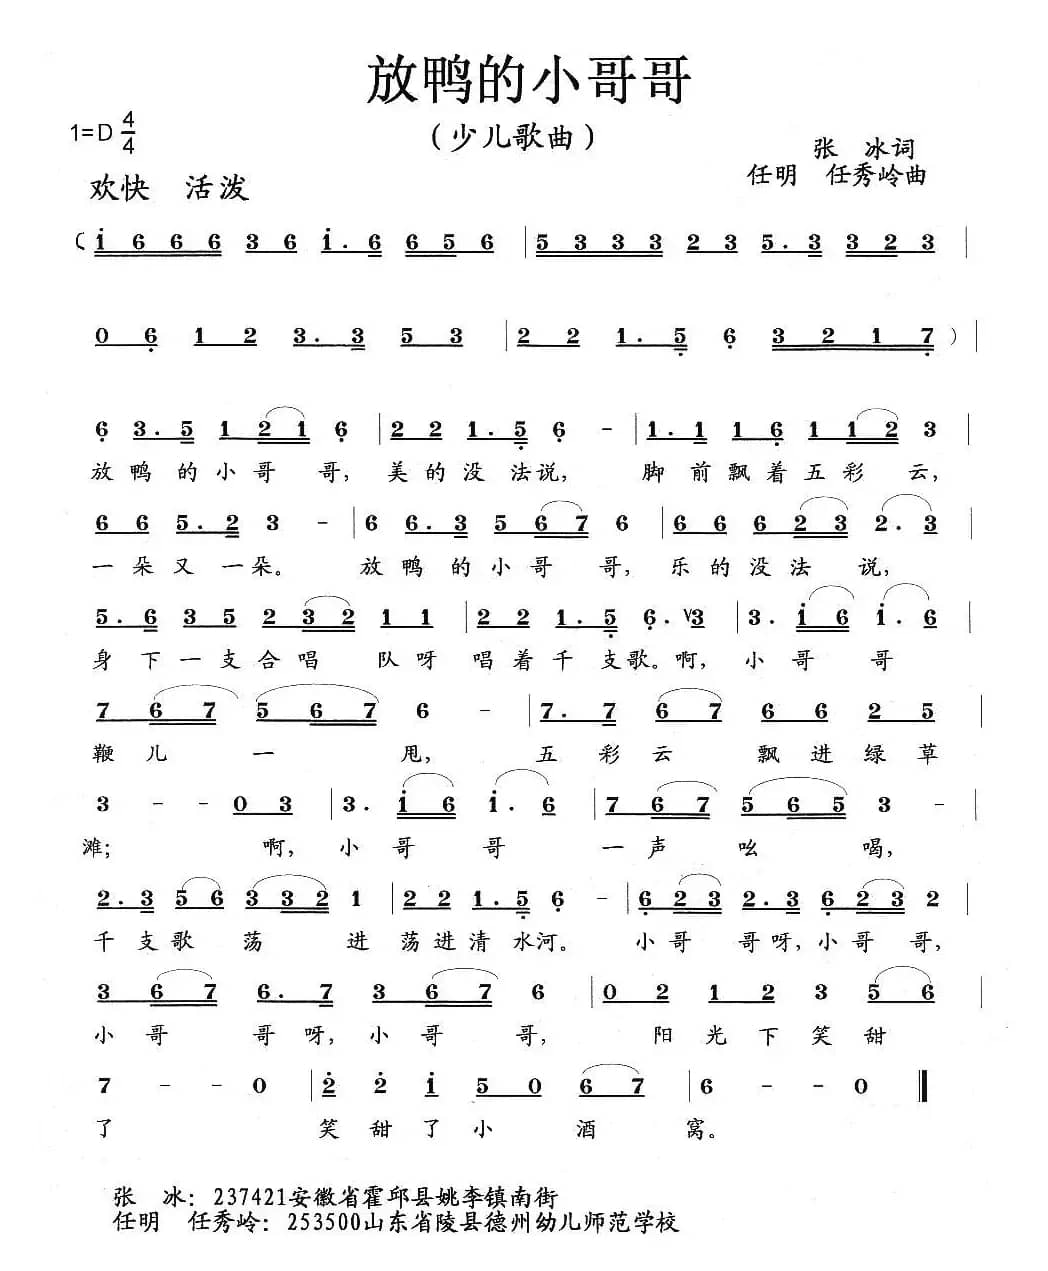 放鸭的小哥哥
1=D 4/4
（少儿歌曲）
张 冰词
欢快 活泼
任明 任秀岭曲
( i 6 6 6 3 6 i . 6 6 5 6 | 5 3 3 3 2 3 5 . 3 3 2 3 |
0 6 1 2 3 . 3 5 3 | 2 2 1 . 5 6 3 2 1 7 ) |
6 3 . 5 1 2 1 6 | 2 2 1 . 5 6 - | 1 . 1 1 6 1 1 2 3 |
放 鸭 的 小 哥 哥， 美 的 没 法 说， 脚 前 飘 着 五 彩 云，
6 6 5 . 2 3 - | 6 6 . 3 5 6 7 6 | 6 6 6 2 3 2 . 3 |
一 朵 又 一 朵。 放 鸭 的 小 哥 哥， 乐 的 没 法 说，
5 . 6 3 5 2 3 2 1 1 | 2 2 1 . 5 6 . V 3 | 3 . i 6 i . 6 |
身 下 一 支 合 唱 队 呀 唱 着 千 支 歌。 啊， 小 哥 哥
7 6 7 5 6 7 6 - | 7 . 7 6 7 6 6 2 5 |
鞭 儿 一 甩， 五 彩 云 飘 进 绿 草
3 - - 0 3 | 3 . i 6 i . 6 | 7 6 7 5 6 5 3 - |
滩； 啊， 小 哥 哥 一 声 吆 喝，
2 . 3 5 6 3 3 2 1 | 2 2 1 . 5 6 - | 6 2 3 2 . 3 6 2 3 2 |
千 支 歌 荡 进 荡 进 清 水 河。 小 哥 哥 呀， 小 哥 哥，
3 6 7 6 . 7 3 6 7 6 | 0 2 1 2 3 5 6 |
小 哥 哥 呀， 小 哥 哥， 阳 光 下 笑 甜
7 - - 0 | 2 2 i 5 0 6 7 | 6 - - 0 ‖
了 笑 甜 了 小 酒 窝。
张 冰：237421安徽省霍邱县姚李镇南街
任明 任秀岭：253500山东省陵县德州幼儿师范学校